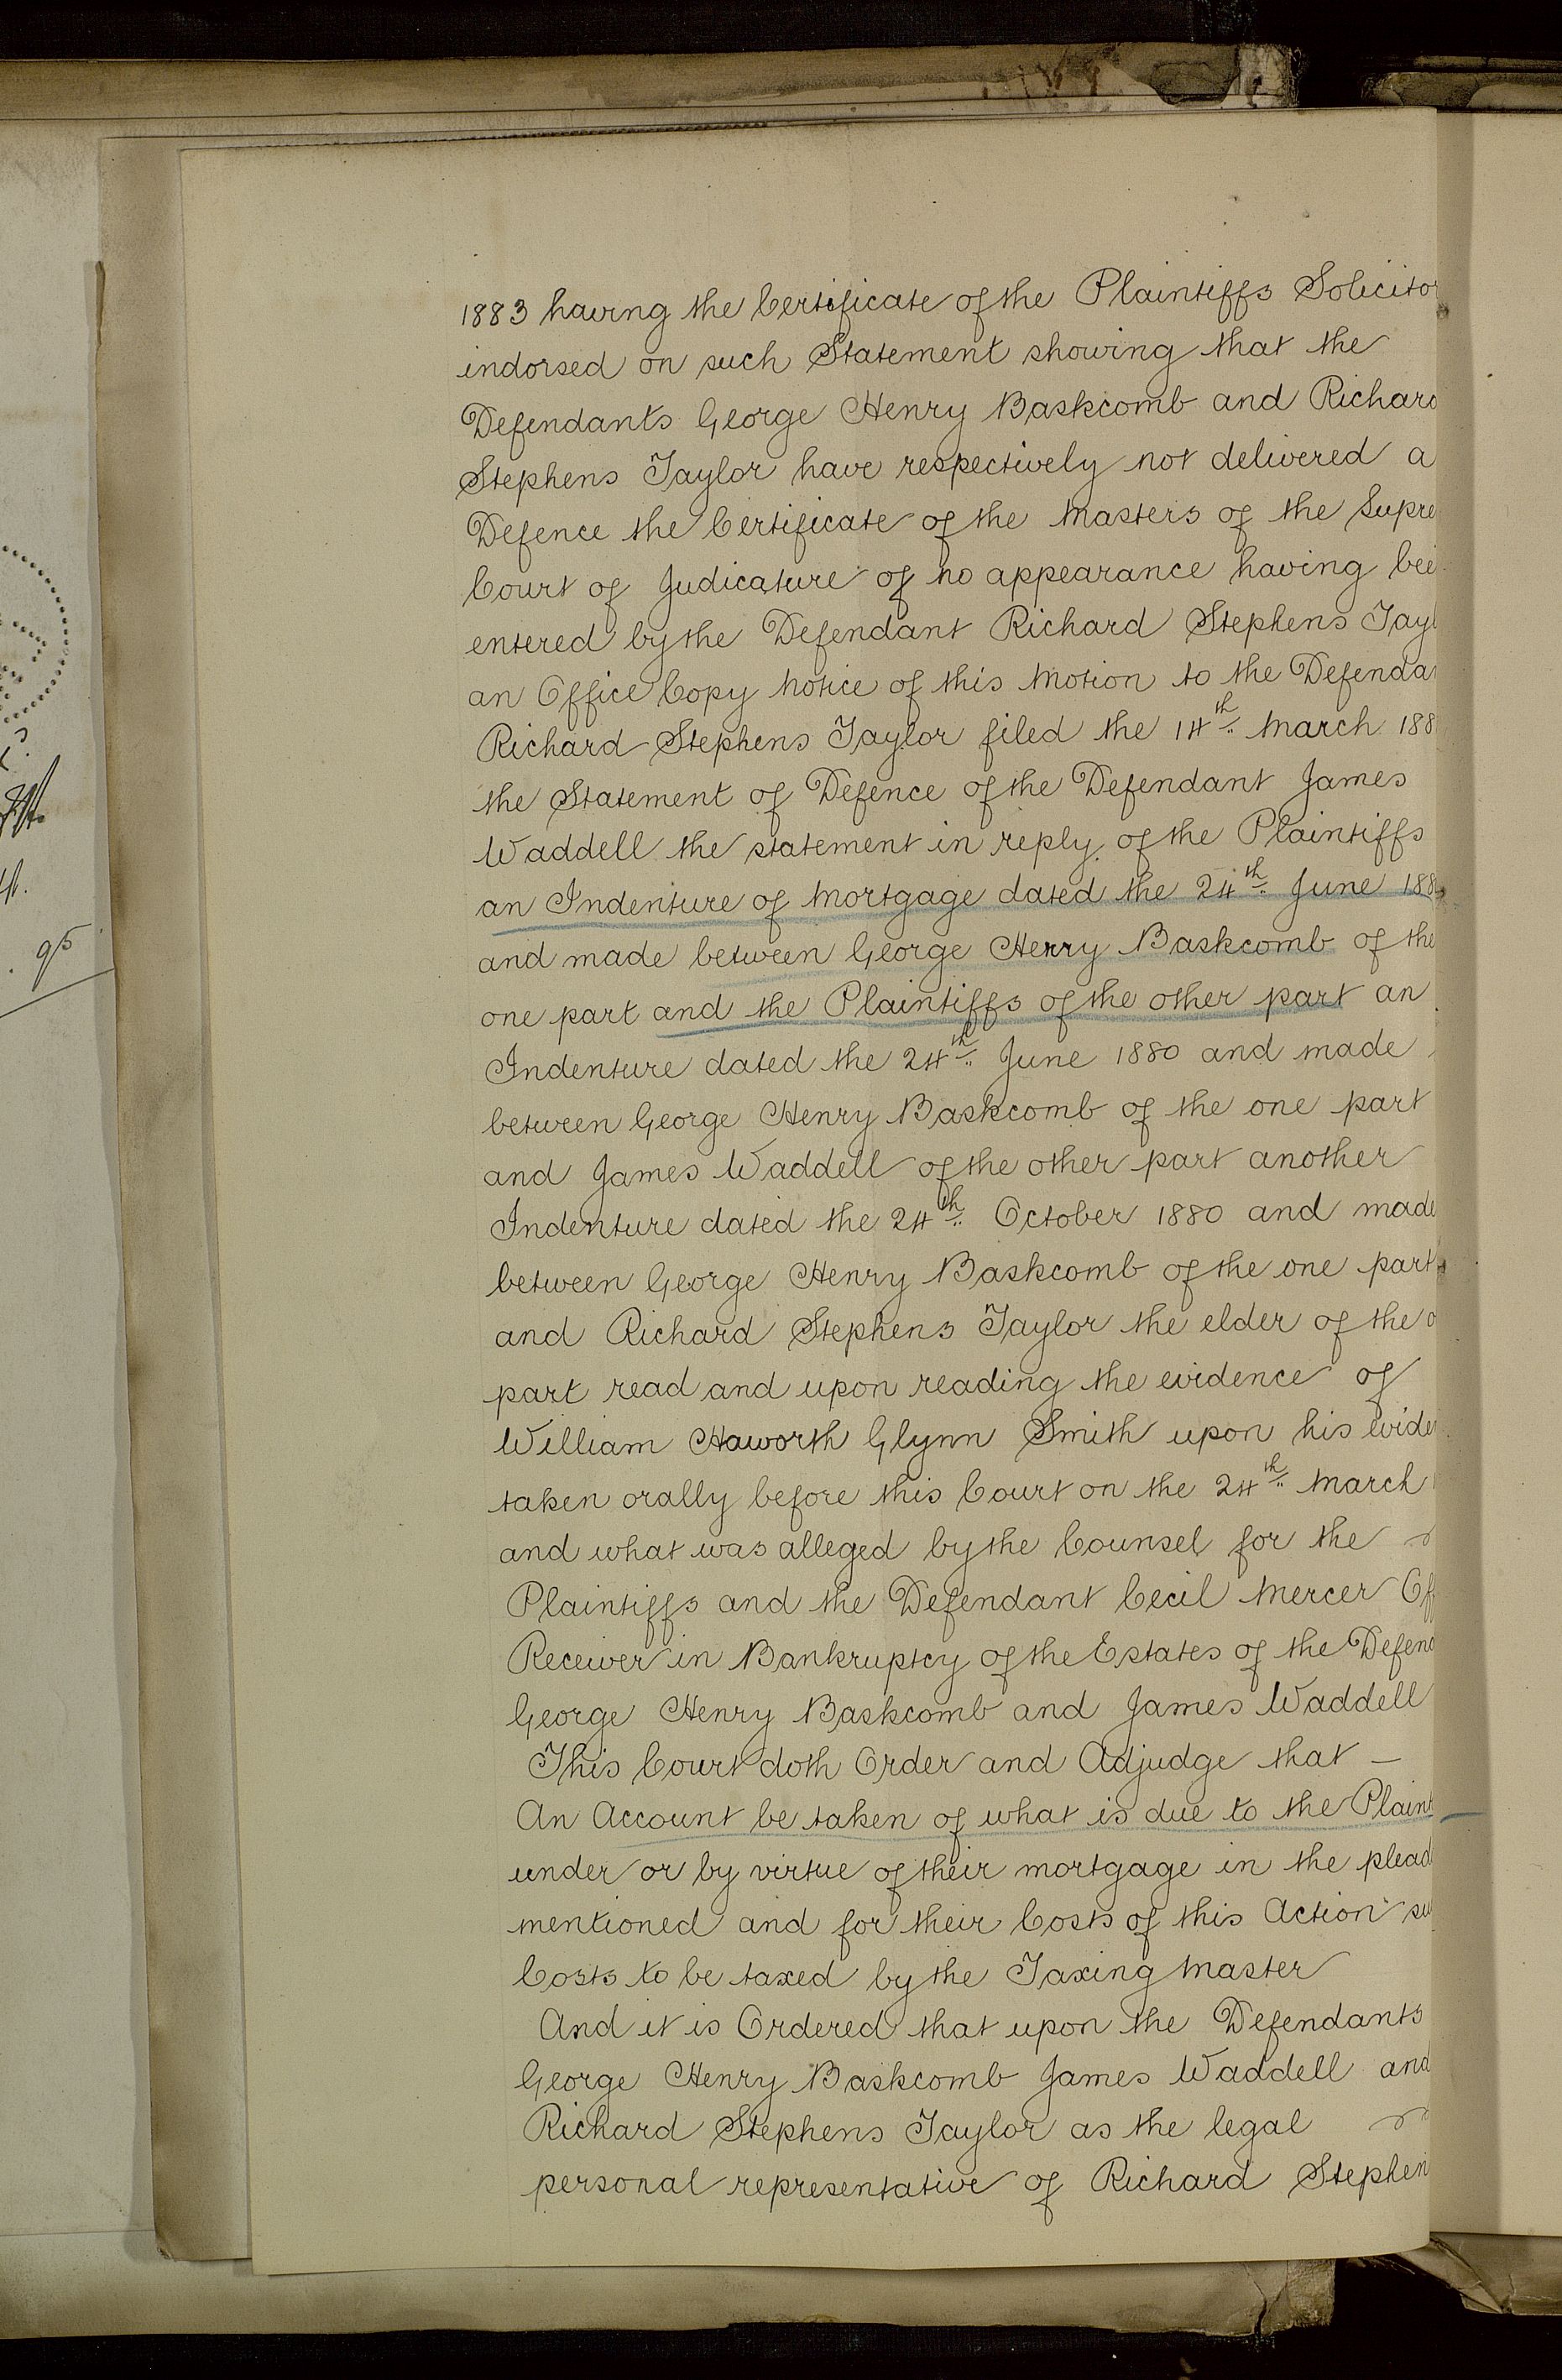 1883 having the Certificate of the Plaintiffs Solicitor
indorsed on such Statement showing that the
Defendants George Henry Baskcomb and Richard
Stephens Taylor have respectively not delivered a
Defence the Certificate of the Masters of the Supre
Court of Judicature of no appearance having bee
entered by the Defendant Richard Stephens Tayl
an Office Copy Notice of this Motion to the Defendan
Richard Stephens Taylor filed the 14th March 188
the Statement of Defence of the Defendant James
Waddell the statement in reply of the Plaintiffs
an Indenture of Mortgage dated the 24th June 188
and made between George Henry Baskcomb of the
one part and the Plaintiffs of the other part an
Indenture dated the 24th June 1880 and made
between George Henry Baskcomb of the one part
and James Waddell of the other part another
Indenture dated the 24th October 1880 and made
between George Henry Baskcomb of the one part
and Richard Stephens Taylor the elder of the o
part read and upon reading the evidence of
William Haworth Glynn Smith upon his evide
taken orally before this Court on the 24th March
and what was alleged by the Counsel for the
Plaintiffs and the Defendant Cecil Mercer Off
Receiver in Bankruptcy of the Estates of the Defend
George Henry Baskcomb and James Waddell
This Court doth Order and Adjudge that —
An Account be taken of what is due to the Plaint
under or by virtue of their mortgage in the plead
mentioned and for their Costs of this Action su
Costs to be taxed by the Taxing Master
And it is Ordered that upon the Defendants
George Henry Baskcomb James Waddell and
Richard Stephens Taylor as the legal
personal representative of Richard Stephen